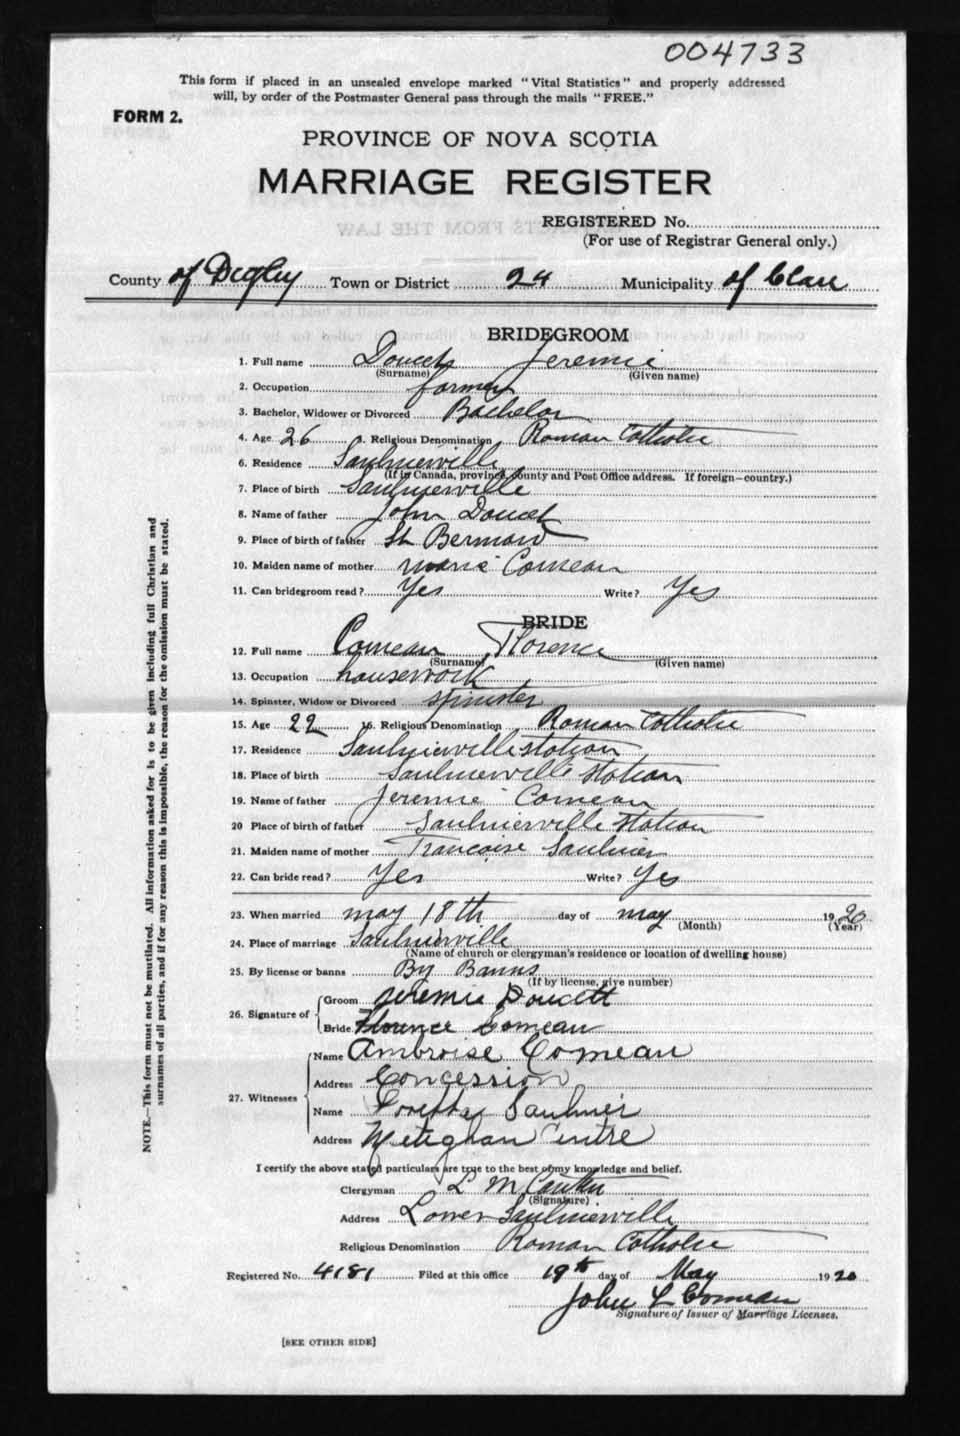 004733
This form if placed in an unsealed envelope marked "Vital Statistics" and properly addressed
will, by order of the Postmaster General pass through the mails "FREE."
FORM 2.
PROVINCE OF NOVA SCOTIA
MARRIAGE REGISTER
REGISTERED No.
(For use of Registrar General only.)
County of Digby Town or District 24 Municipality of Clare
BRIDEGROOM
1. Full name Doucet Jeremie
(Surname) (Given name)
2. Occupation farmer
3. Bachelor, Widower or Divorced Bachelor
4. Age 26 5. Religious Denomination Roman Catholic
6. Residence Saulnierville
(If in Canada, province, county and Post Office address. If foreign—country.)
7. Place of birth Saulnierville
8. Name of father John Doucet
9. Place of birth of father St Bernard
10. Maiden name of mother marie Comeau
11. Can bridegroom read? Yes Write? Yes
BRIDE
12. Full name Comeau Florence
(Surname) (Given name)
13. Occupation housework
14. Spinster, Widow or Divorced spinster
15. Age 22 16. Religious Denomination Roman Catholic
17. Residence Saulnierville station
18. Place of birth Saulnierville Station
19. Name of father Jeremie Comeau
20 Place of birth of father Saulnierville Station
21. Maiden name of mother Francoise Saulnier
22. Can bride read? Yes Write? Yes
23. When married may 18th day of may 1920
(Month) (Year)
24. Place of marriage Saulnierville
(Name of church or clergyman's residence or location of dwelling house)
25. By license or banns By Banns
(If by license, give number)
26. Signature of Groom Jeremie Doucett
Bride Florence Comeau
27. Witnesses Name Ambroise Comeau
Address Concession
Name Saulnier
Address Meteghan Centre
I certify the above stated particulars are true to the best of my knowledge and belief.
Clergyman L
(Signature)
Address Lower Saulnierville
Religious Denomination Roman Catholic
Registered No. 4181 Filed at this office 19th day of May 1920
John L Comeau
Signature of Issuer of Marriage Licenses.
[SEE OTHER SIDE]
NOTE.—This form must not be mutilated. All information asked for is to be given including full Christian and
surnames of all parties, and if for any reason this is impossible, the reason for the omission must be stated.